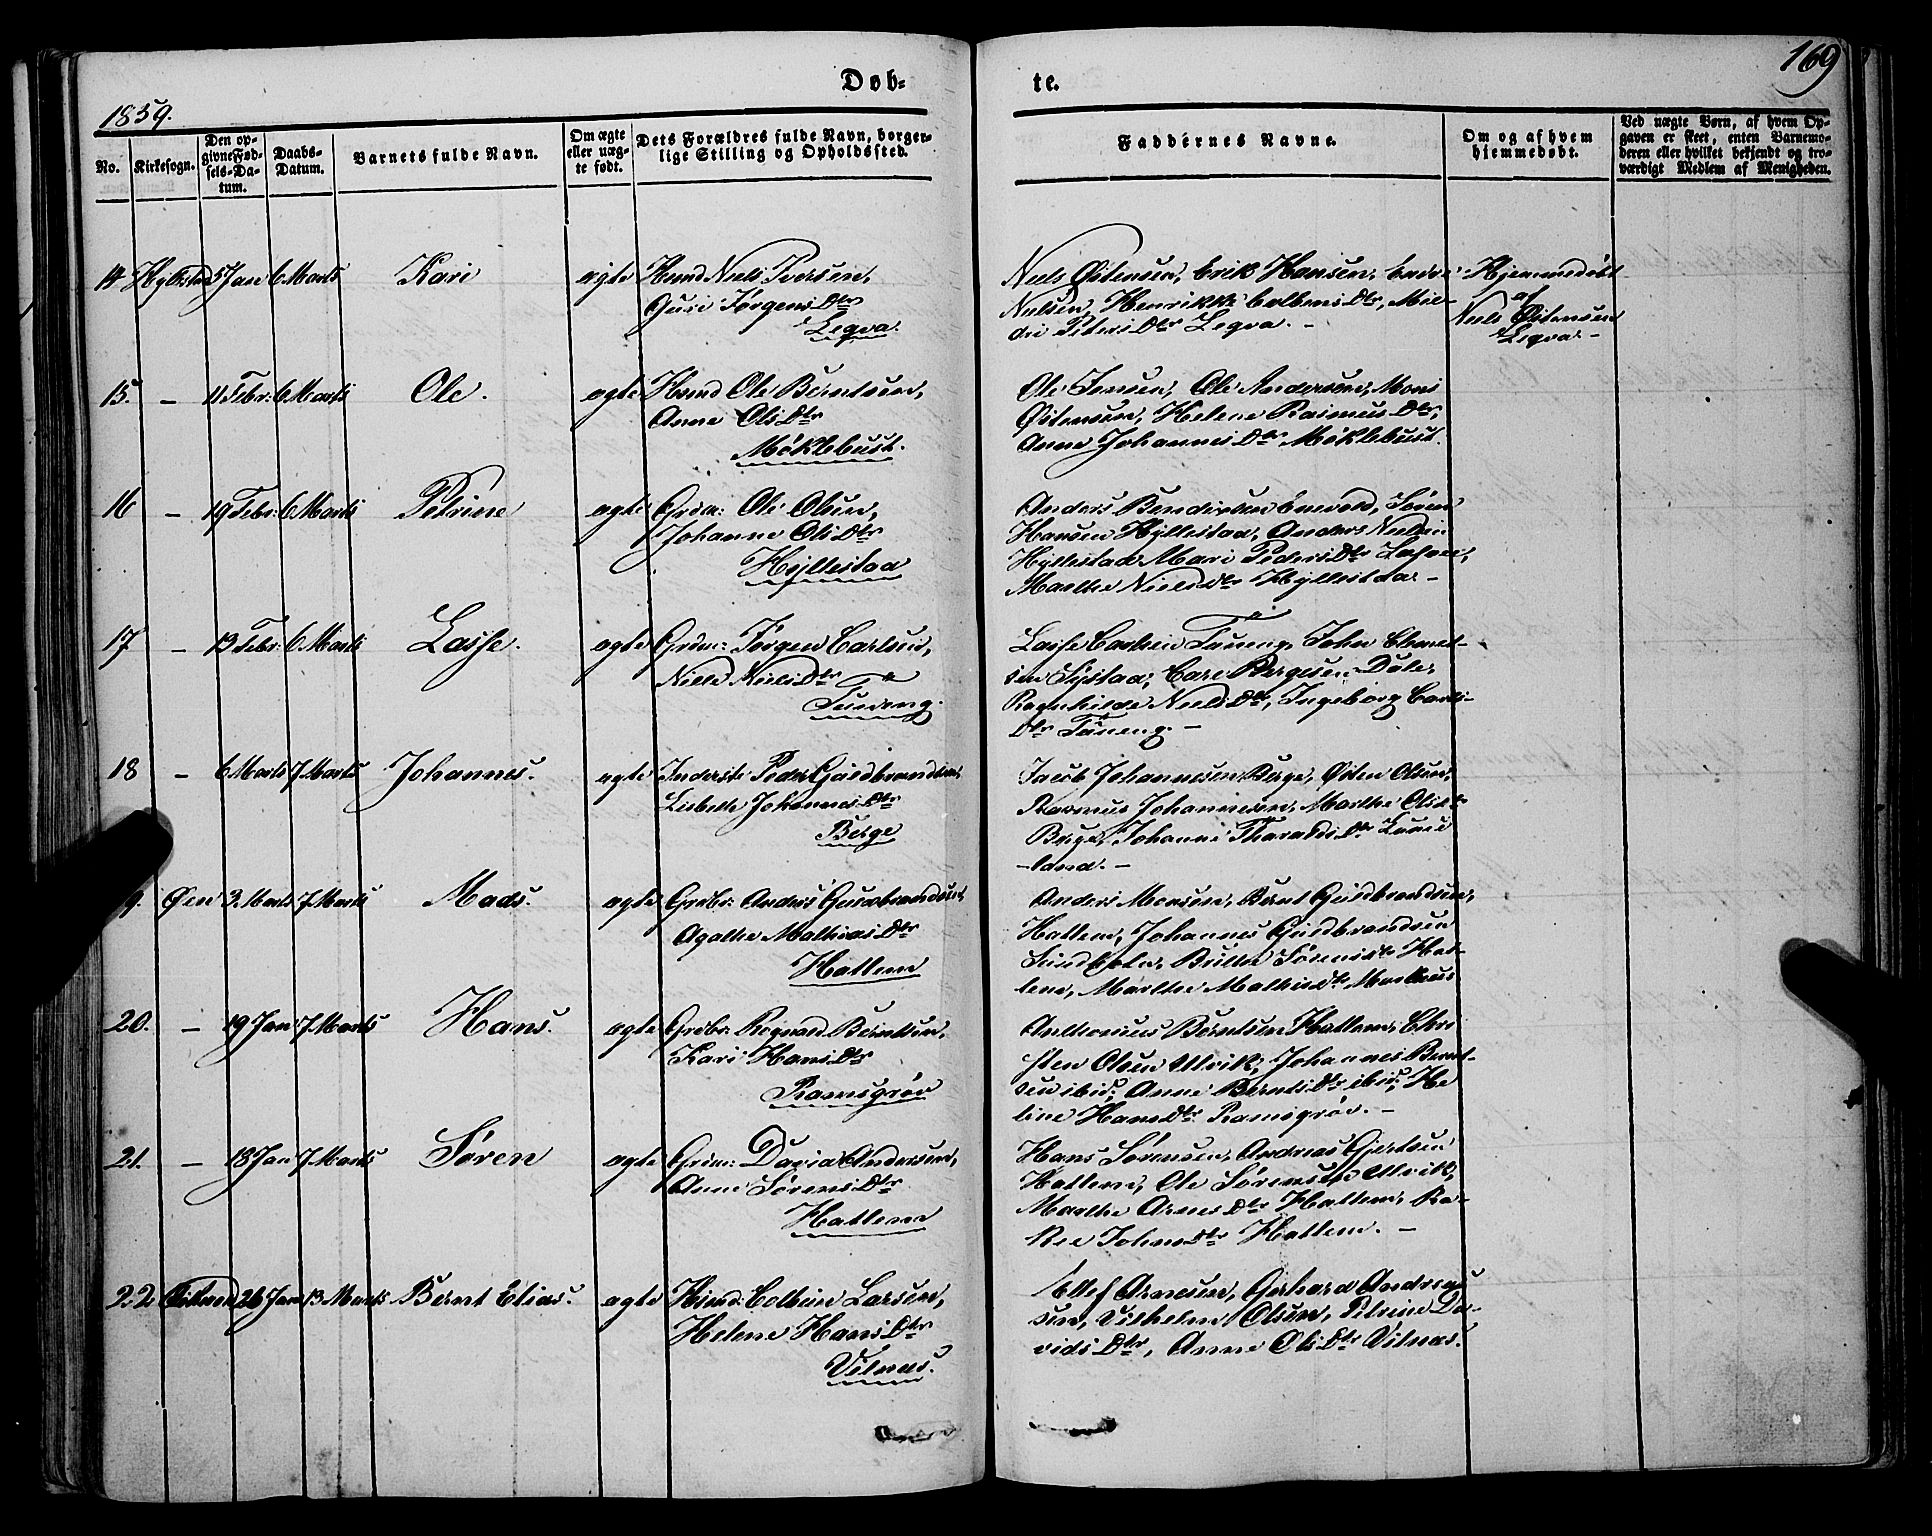 169
Døb-
te.
1859.
No.
Kirkesogn.
Den op-
givne Fød-
sels-Da-
tum.
Daabs-
Datum.
Barnets fulde Navn.
Om ægte
eller uæg-
te født.
Dets Forældres fulde Navn, borger-
lige Stilling og Opholdssted.
Faddernes Navne.
Om og af hvem
hjemmedøbt.
Ved uægte Børn, af hvem Op-
gaven er skeet, enten Barnemo-
deren eller hvilket bekjendt og tro-
værdigt Medlem af Menigheden.
14 Hyllestad 5 Jan 6 Marts Kari ægte Hsmd Niels Iversen,
Guri Jørgens Dtr
Legva.
Niels Østensen, Erik Hansen,
Nielsen, Henrikke Colbens Dtr, Mil-
dri Peters Dtr Legva. -
Hjemmedøbt
af
Niels Østensen
Legva -
15. - 11 Febr: 6 Marts Ole. ægte Hsmd Ole Berntsen,
Anne Ols Dtr
Møklebust.
Ole Jensen, Ole Andersen, Mons
Østensen, Helene Rasmus Dtr,
Anne Johannes Dtr Møklebust.
16 - 19 Febr: 6 Marts Petrine ægte Grdm: Ole Olsen,
Johanne Ols Dtr
Hyllestad
Anders Bendixsen Enevold, Søren
Hansen Hyllestad, Anders Nielsen
Hyllestad Mari Peders Dtr
Marthe Niels Dtr Hyllestad -
17 - 13 Febr: 6 Marts Lasse. ægte Grdm: Jørgen Carlsen,
Nille Niels Dtr
Tuneng.
Lasse Carlsen Tuneng, John Clemet-
sen Systad, Carl Børgesen Dale,
Ragnhilde Niels Dtr, Ingeborg Carls-
Dtr Tuneng. -
18 - 6 Marts 7 Marts Johannes. ægte Inderste Peder Guldbrandsen,
Lisbeth Johannes Dtr
Berge
Jacob Johannesen Berge, Østen Olsen,
Rasmus Johannesen, Marthe Ols Dtr
Berge, Johanne Tharalds Dtr
-land. -
19. Øen 3 Marts 7 Marts Mads. ægte Grdbr: Anders Guldbrandsen,
Agathe Mathias Dtr
Hatlem
Anders Monsen, Bernt Guldbrandsen,
Hatlem, Johannes Guldbrandsen
Britha Sørens Dtr Hat-
lem, Marthe Mathias Dtr
20. - 19 Jan 7 Marts Hans. ægte Grdbr: Rognald Berntsen,
Kari Hans Dtr
Ramsgrøv
Anthonius Berntsen Hatlem, Chri
sten Olsen Ulvik, Johannes Bernt-
sen ibid; Anne Bernts Dtr ibid; He
line Hans Dtr Ramsgrøv. -
21. - 18 Jan 7 Marts Søren ægte Grdm: David Andersen,
Anne Sørens Dtr
Hatlem
Hans Sørensen, Andreas Gjertsen
Hatlem, Ole Sørensen Ulvik,
Marthe Arnes Dtr Hatlem, Ra-
kee Johns Dtr Hatlem. -
22 26 Jan 13 Marts Bernt Elias. ægte Hsmd: Colbein Larsen,
Helene Hans Dtr
Vilnes.
Ellef Arnesen, Gerhard Andreas
sen, Vilhelm Olsen, Petrine Da-
vids Dtr, Anne Ols Dtr Vilnes.